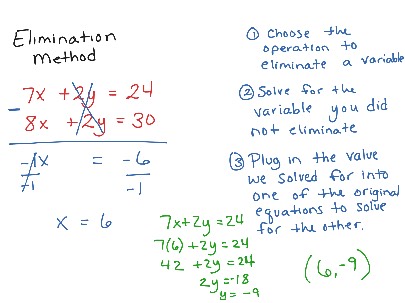 Elimination
Method
7x + 2y = 24
- 8x + 2y = 30
-1x = -6
-1 -1
x = 6
① Choose the
operation to
eliminate a variable
② Solve for the
variable you did
not eliminate
③ Plug in the value
we solved for into
one of the original
equations to solve
for the other.
7x + 2y = 24
7(6) + 2y = 24
42 + 2y = 24
2y = -18
y = -9
(6, -9)